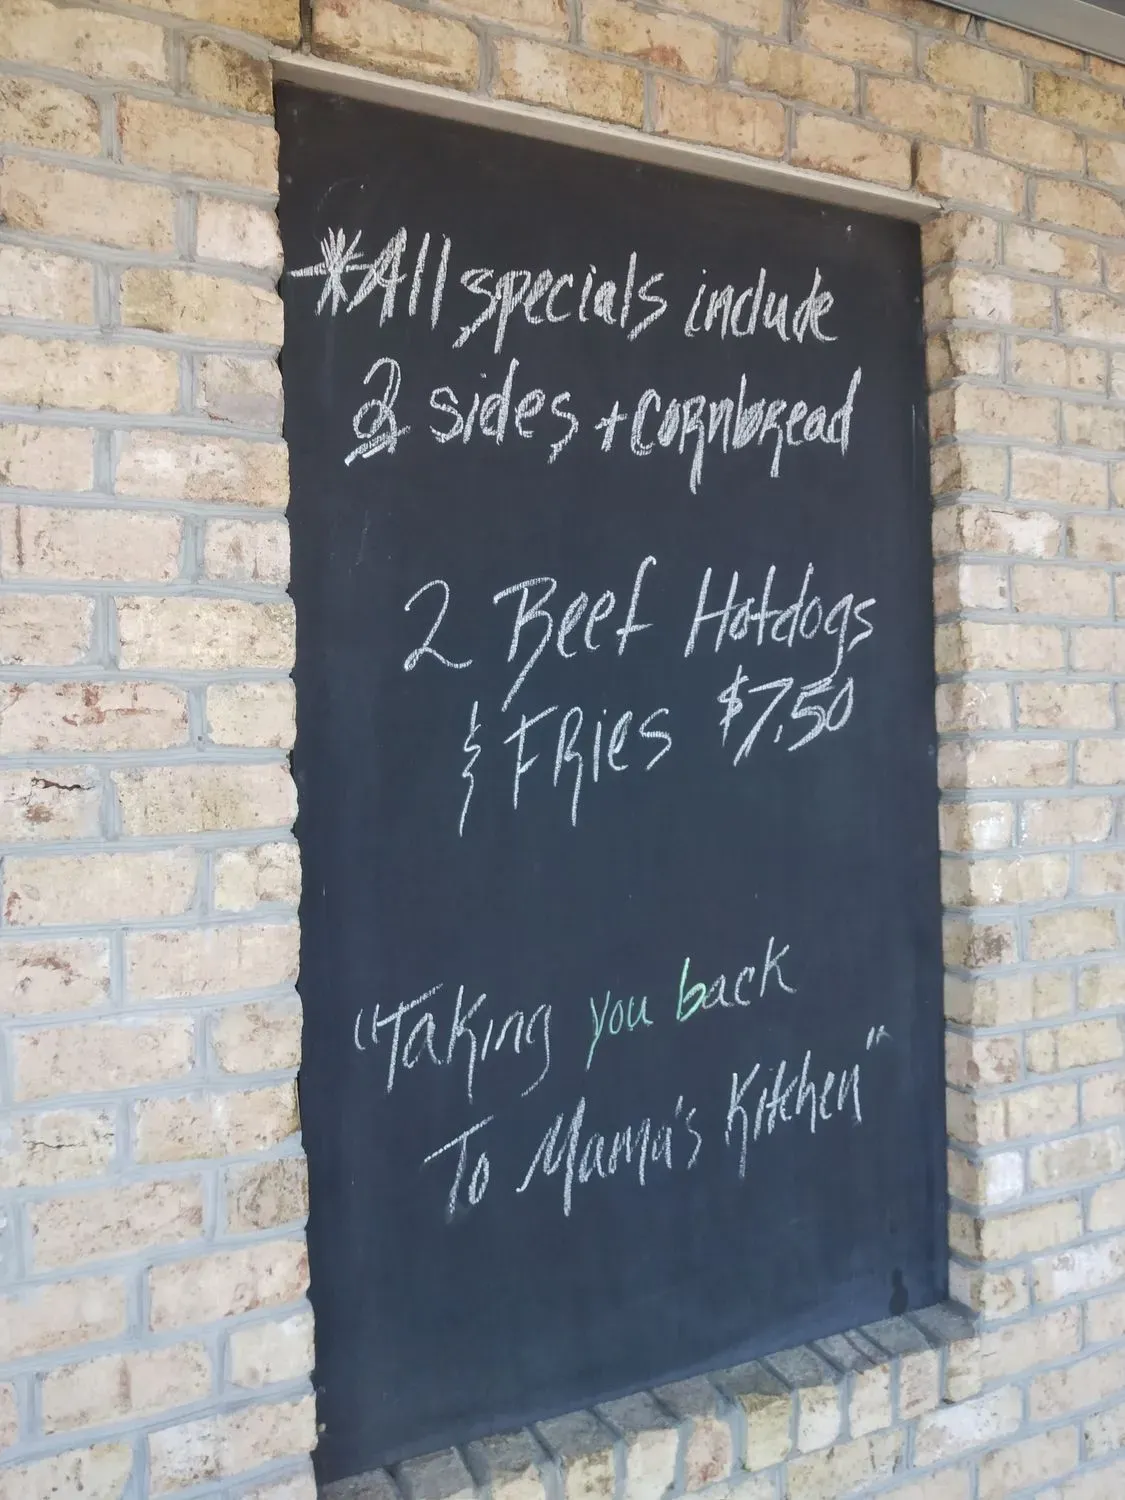 *All specials include
2 sides + cornbread
2 Beef Hotdogs
& FRies $7.50
"Taking you back
To Mama's Kitchen"